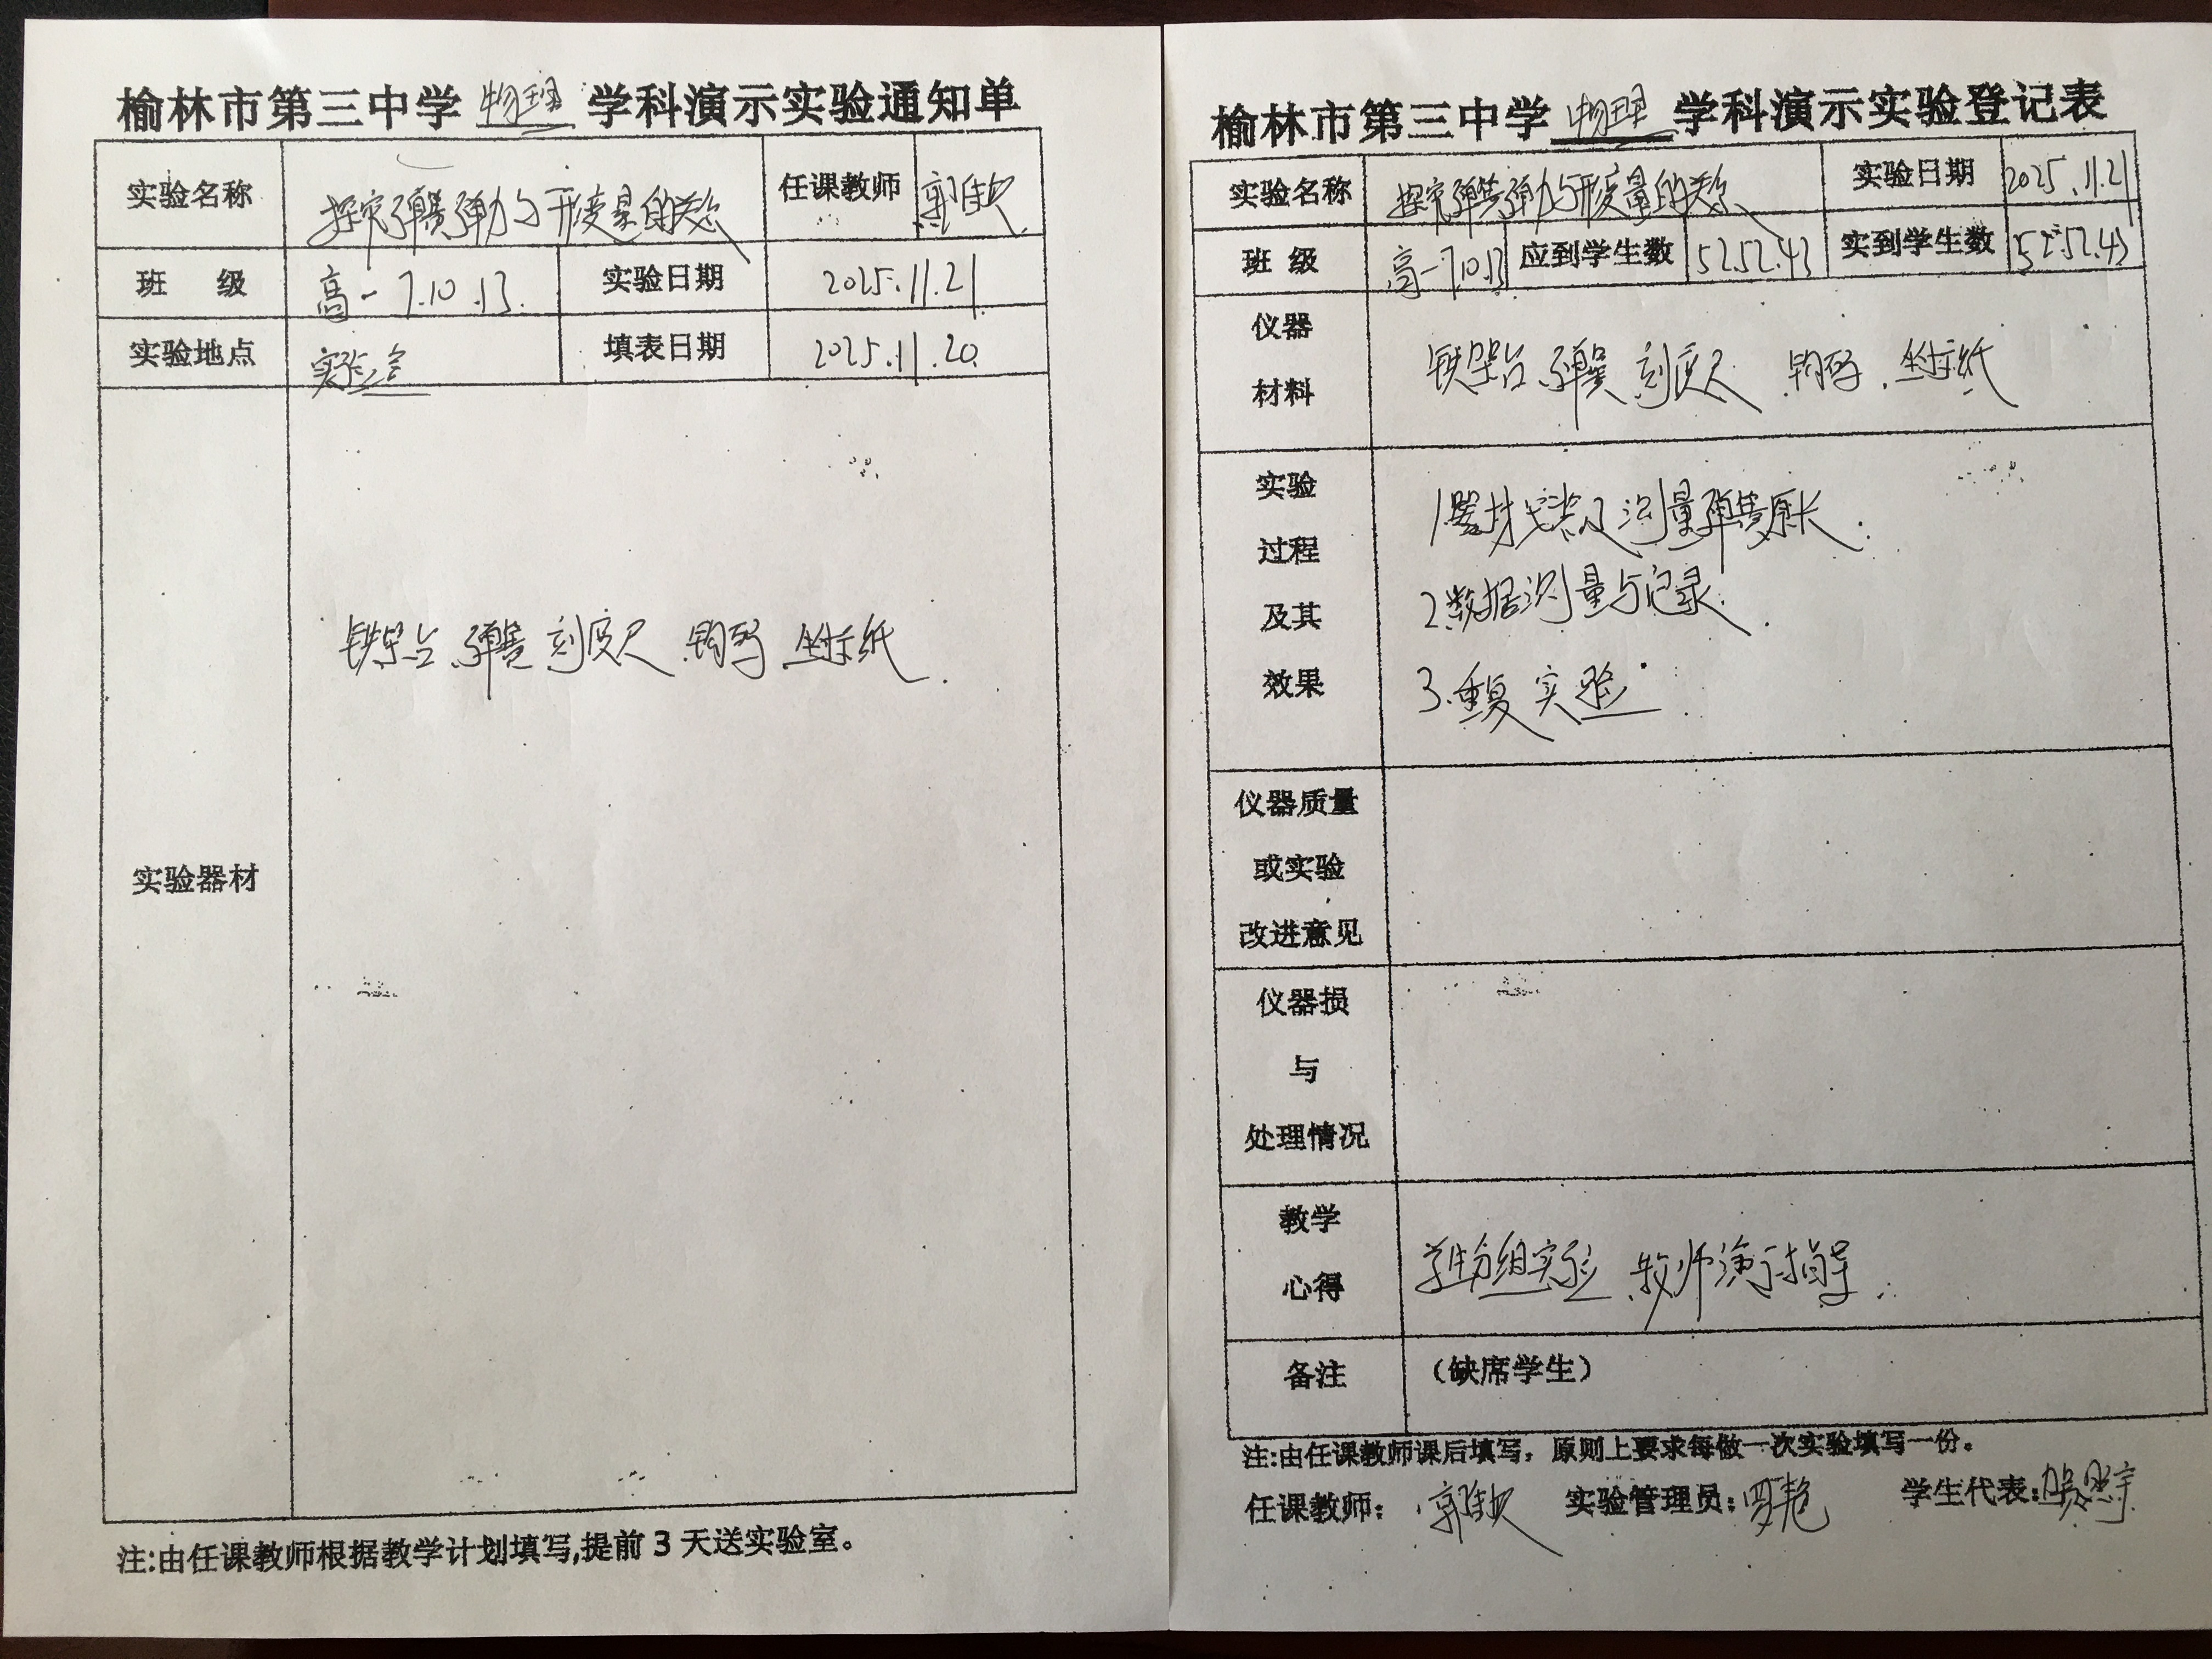 榆林市第三中学 物理 学科演示实验通知单
实验名称 探究弹簧弹力与形变量的关系 任课教师
班 级 高一 7.10.13. 实验日期 2025.11.21
实验地点 实验室 填表日期 2025.11.20.
铁架台 弹簧 刻度尺 钩码 坐标纸.
实验器材
注:由任课教师根据教学计划填写,提前3天送实验室。
榆林市第三中学 物理 学科演示实验登记表
实验名称 探究弹簧弹力与形变量的关系 实验日期 2025.11.21
班 级 高一 7.10.13 应到学生数 52.52.43 实到学生数 52.52.43
仪器
材料
铁架台 弹簧 刻度尺 钩码 . 坐标纸
实验
过程
及其
效果
1.器材安装及测量弹簧原长.
2.数据测量与记录.
3.重复实验.
仪器质量
或实验
改进意见
仪器损
与
处理情况
教学
心得
学生分组实验 教师演示指导.
备注 （缺席学生）
注:由任课教师课后填写，原则上要求每做一次实验填写一份。
任课教师： 实验管理员:罗艳 学生代表: